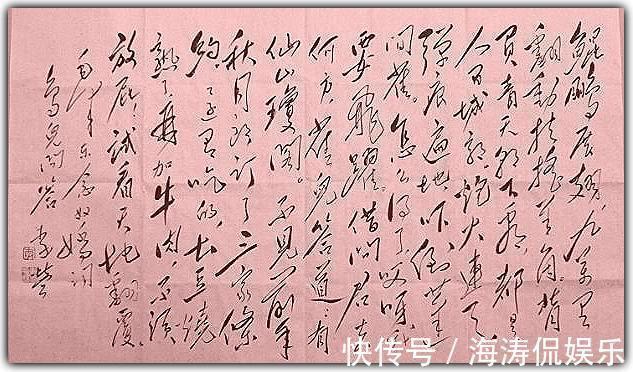 鲲鹏展翅，九万里
翻动扶摇羊角。背
负青天朝下看，都是
人间城郭。炮火连天
弹痕遍地，吓倒蓬
间雀。怎么得了，哎呀我
要飞跃。借问君去
何方，雀儿答道：有
仙山琼阁。不见前年
秋月朗，订了三家条
约。还有吃的，土豆烧
熟了，再加牛肉。不须
放屁，试看天地翻覆
毛泽东念奴娇词
鸟儿问答
快传号 / 海涛侃娱乐